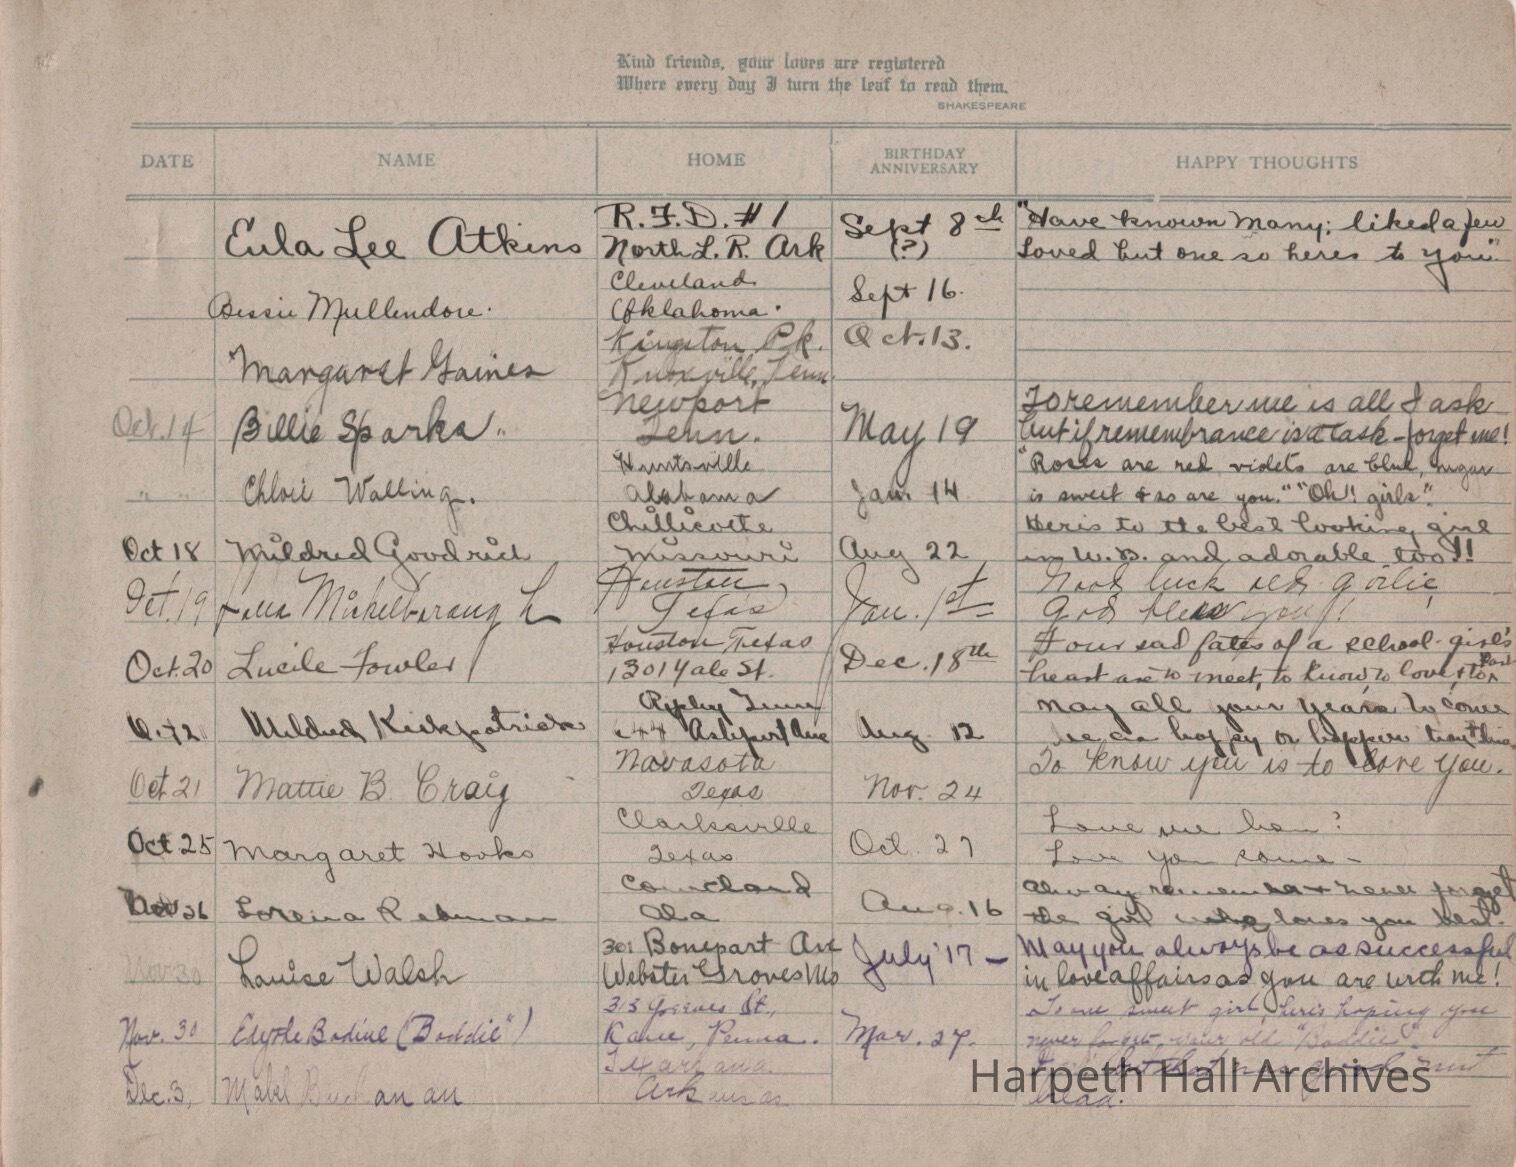 Kind friends, your loves are registered
Where every day I turn the leaf to read them.
SHAKESPEARE
DATE NAME HOME BIRTHDAY ANNIVERSARY HAPPY THOUGHTS
Eula Lee Atkins R.F.D. #1 North L. R. Ark Sept 8th (?) "Have known many; liked a few
Loved but one so heres to you"
Bessie Mullendore. Cleveland Oklahoma. Sept 16.
Margaret Gaines Kingston Pk. Knoxville, Tenn. Oct. 13.
Oct. 14 Billie Sparks. Newport Tenn. May 19 To remember me is all I ask
but if remembrance is a task - forget me!
" " Chloie Walling. Huntsville Alabama Jan. 14 "Roses are red violets are blue, sugar
is sweet & so are you." "Oh! girls".
Oct 18 Mildred Goodrich Chillicothe Missouri Aug 22 Heris to the best looking girl
in W.B. and adorable too!!
Oct. 19 Houston, Texas Jan. 1st Good luck old girlie
God bless you!
Oct. 20 Lucile Fowler Houston Texas 1301 Yale St. Dec. 18th Four sad fates of a school-girl's
heart are to meet, to know, to love, & to part
Mildred Kirkpatrick Ripley Tenn Aug. 12 May all your years to come
be as happy or happier than this
Oct 21 Mattie B. Craig Navasota Texas Nov. 24 To know you is to love you.
Oct 25 Margaret Hooks Clarksville Texas Oct. 27 Love me hon?
Love you some -
26 Lorena Courtland Ala Aug. 16 Alway remember & never forget
the girl who loves you best.
Nov 30 Louise Walsh 301 Bonepart Ave Webster Groves Mo July '17 - May you always be as successful
in love affairs as you are with me!
Nov. 30 Edythe Bodine ("Boddie") 313 Greeves St., Kane, Penna. Mar. 27. To one sweet girl, here's hoping you
never forget, your old "Boddie".
Dec. 3, Mabel Buchanan Texarkana Arkansas
Harpeth Hall Archives